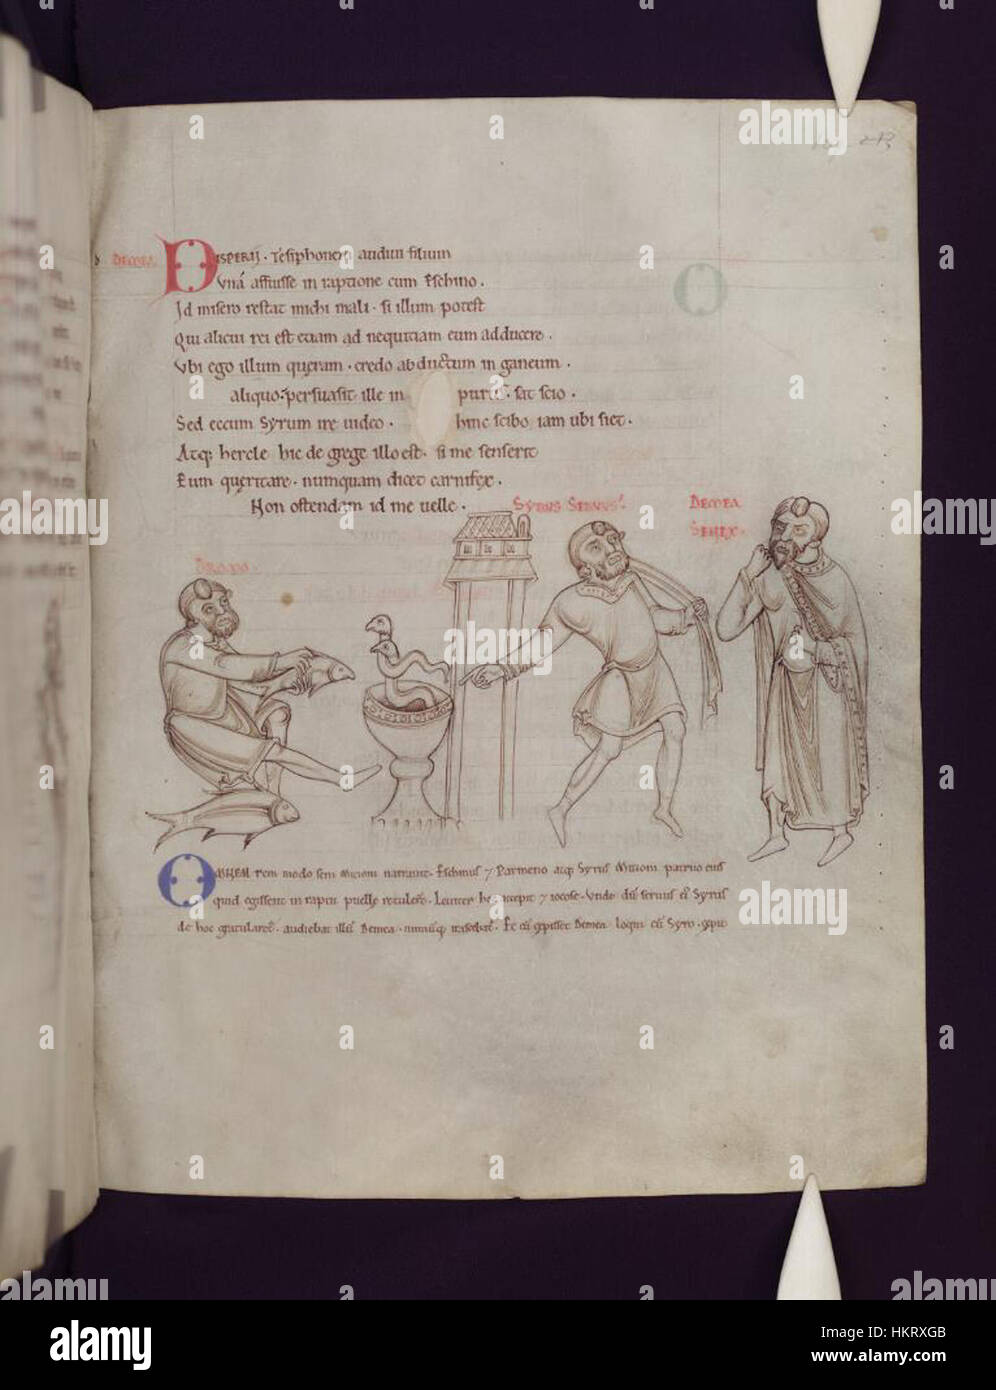 DEMEA
DISPERII. Tesiphonem audiui filium
Vna affuisse in raptione cum Eschino.
Id misero restat michi mali. si illum potest
Qui alicui rei est etiam ad nequitiam eum adducere.
Vbi ego illum queram. credo abductum in ganeum.
aliquo. persuasit ille inpurus. sat scio.
Sed eccum Syrum ire uideo. hinc scibo iam ubi siet.
Atq; hercle hic de grege illo est. si me senserit
Eum queritare. numquam dicet carnifex.
Non ostendam id me uelle.
SYRUS SERVUS.
DEMEA
SENEX.
DROMO.
OMNEM rem modo seni Micioni narrauit. Eschinus 7 Parmeno atq; Syrus Micioni patruo eius
quid egissent in raptu puelle retulere. Leniter hec accepit 7 iocose. Vnde dum seruus ei Syrus
de hoc gratularet. audiebat illum Demea. nimiusq; irascebat. Et cum cepisset Demea loqui cum Syro. cepit
a alamy
alamy
Image ID: HKRXGB
www.alamy.com